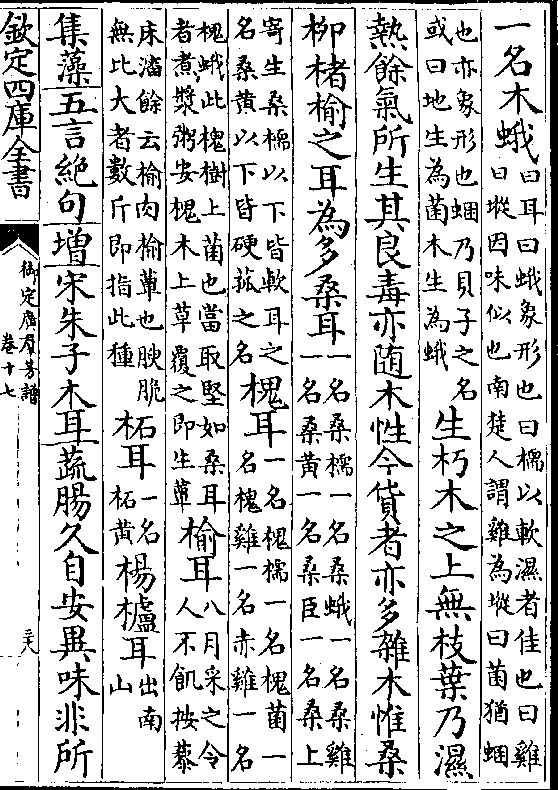 一名木蛾曰耳曰蛾象形也曰檽以軟濕者佳也曰雞
曰樅因味似也南楚人謂雞為樅曰菌猶蜠
也亦象形也蜠乃貝子之名
或曰地生為菌木生為蛾
生朽木之上無枝葉乃濕
熱餘氣所生其良毒亦随木性今貨者亦多雜木惟桑
柳楮榆之耳為多桑耳一名桑檽一名桑蛾一名桑雞
一名桑黄一名桑臣一名桑上
寄生桑檽以下皆軟耳之
名桑黄以下皆硬菰之名
槐耳一名槐檽一名槐菌一
名槐雞一名赤雞一名
槐蛾此槐樹上菌也當取堅如桑耳
者煮漿粥安槐木上草覆之即生蕈
榆耳八月采之令
人不飢按蔡
床潘餘云榆肉榆蕈也腴脆
無比大者數斤即指此種
柘耳一名
柘黄
楊櫨耳出南
山
集藻五言絶句增宋朱子木耳蔬腸久自安異味非所
欽定四庫全書
御定廣羣芳譜
卷十七